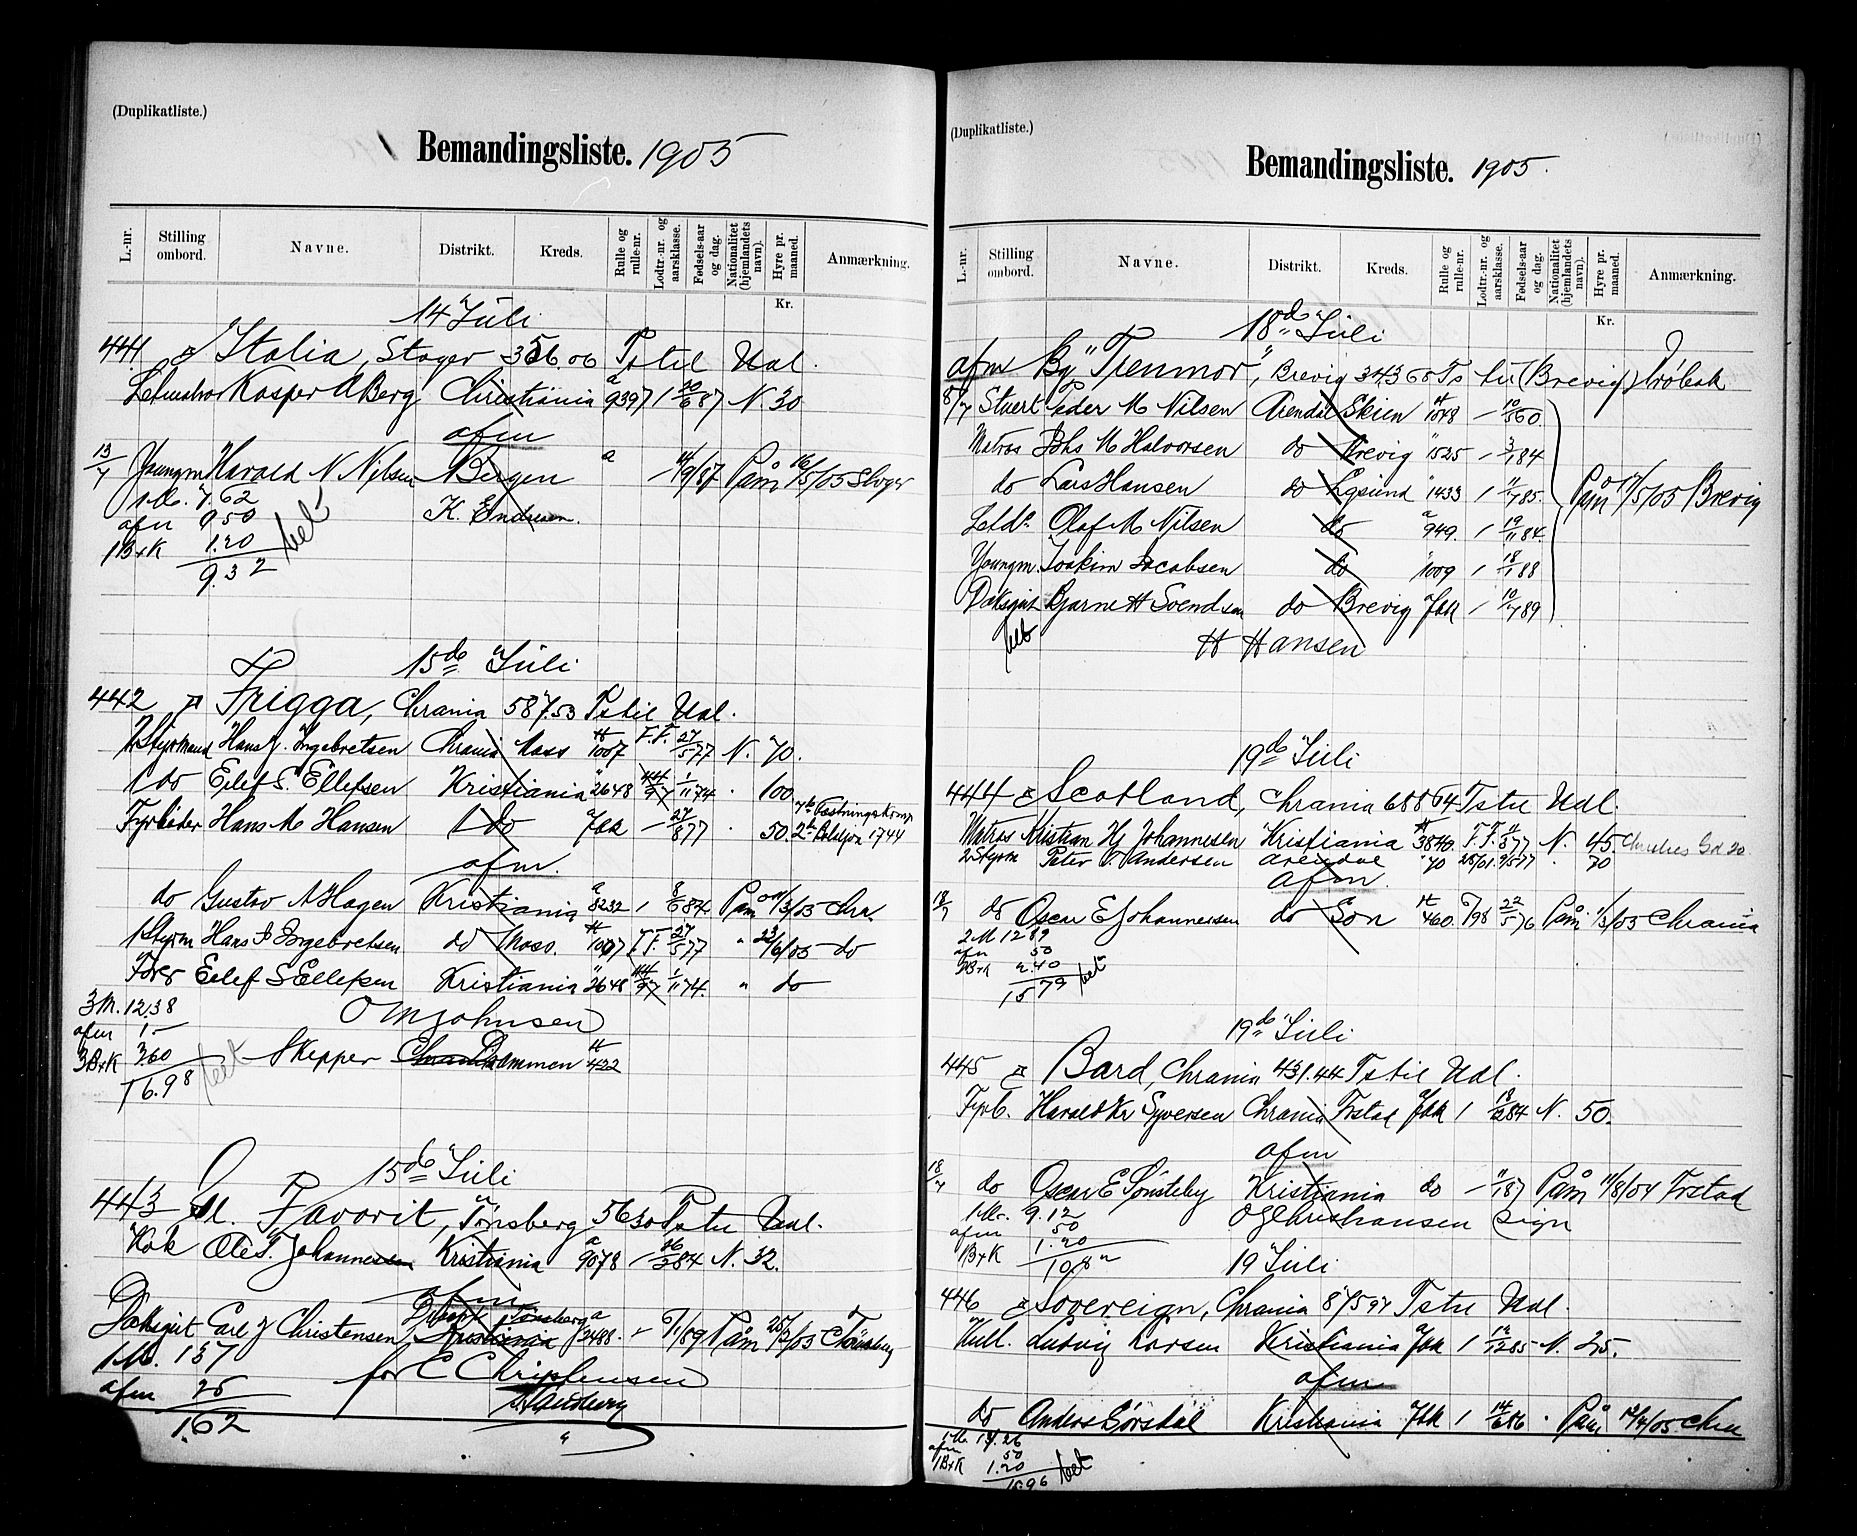 (Duplikatliste.)
Bemandingsliste. 1905
L.-nr. Stilling ombord. Navne. Distrikt. Kreds. Rulle og rulle-nr. Lodtr.-nr. og aarsklasse. Fødsels-aar og dag. Nationalitet (hjemlandets navn). Hyre pr. maaned. Anmærkning.
Kr.
14 Juli
441 Italia, 356 06 Ts til Udl.
Kasper A Berg Christiania 9397 1 20/6 87 N. 30
afm
13/7 Youngm Harald N Nilsen Bergen a 14/9/87 Påm 16/5/05
1 M. 7.62 K. Endresen.
afm 50
1 B+K 1.20
9.32
bet
15de Juli
442 Frigga, Chrania 587.53 Ts til Udl.
2 Styrmand Hans J. Ingebretsen Chrania Moss 1007 F.F. 27/5 77 N. 70.
1 do Eilef S. Ellefsen Kristiania 2648 1/11 74 100
Fyrbøder Hans M Hansen do Jdk 27/8 77 50. 1744
afm.
do Gustav A Hagen Kristiania a 8232 1 8/6 84 Påm 11/3/05 Chra.
1 Styrm Hans J Ingebretsen do Moss. 1007 F.F. 27/5 77 " 23/6/05 do
Fører Eilef S Ellefsen Kristiania 2648 1/11 74. " do
3 M. 12.38 O M Johnsen
afm 1.–
3 B+K 3.60 Skipper Drammen 422
16.98
bet
15de Juli
443 Favorit, Tønsberg 56 30 Ts til Udl.
Kok Ole T. Johannessen Kristiania a 9078 1 26/3 84 N. 32.
afm
Dæksgut Carl J Christensen Tønsberg Kristiania a 2488. Påm Tønsberg
1 M. 137 for C Christensen
afm 25
1.62

(Duplikatliste.)
Bemandingsliste. 1905.
L.-nr. Stilling ombord. Navne. Distrikt. Kreds. Rulle og rulle-nr. Lodtr.-nr. og aarsklasse. Fødsels-aar og dag. Nationalitet (hjemlandets navn). Hyre pr. maaned. Anmærkning.
Kr.
18de Juli
afm Bg "Trenmor", Brevig 343 68 Ts til (Brevig) Drøbak
8/7 Stuert Peder M Nilsen Arendal Skien 1048 – 10/8 50.
Matros Johs M Halvorsen do Brevig " 525 – 3/7 84
do Lars Hansen do Egsund " 1433 1 11/7 85. Påm 17/5/05 Brevig
Letm. Olaf M Nilsen do a 949. 1 19/11 84.
Youngm. Joakim Jacobsen do " 1009 1 18/1 88
Dæksgut Bjarne H Svendsen do Brevig Jdk 1 10/7 89
bet H Hansen
19de Juli
444 Scotland, Chrania 688 64 Ts til Udl.
Matros Kristian Hj Johannesen Kristiania 3840. F.F. 11/3 77 N. 45.
2 Styrm Peter O. Andersen Arendal " 70 25/01. 9/5 77 . 70
afm.
18/7 do Oscar E Johannessen do Son 460. 98 22/5 76 Påm 1/3/05 Chrania
2 M 12 89
afm 50
2 B+K 2.40
15 79
bet
19de Juli
445 Bard, Chrania 431.44 Ts til Udl.
Fyrb. Harald Kr Syversen Chrania Jdk 1 18/2 84 N. 50.
afm
18/7 do Oscar E Sønsteby Kristiania do – 11/1 87 Påm 11/8/04
1 M. 9.12 O J Christiansen sign
afm 50
B+K 1.20
10.82
19 Juli
446 Sovereign, Chrania 875 97 Ts til Udl.
Kull. Ludvig Larsen Kristiania Jdk 1 12/12 85 N. 25.
afm
do Anders Sørsdal Kristiania Jdk 1 14/6 86 . Påm 12/4/05 Chra
1 M. 14.26
afm 50
1 B+K 1.20
15.96
bet